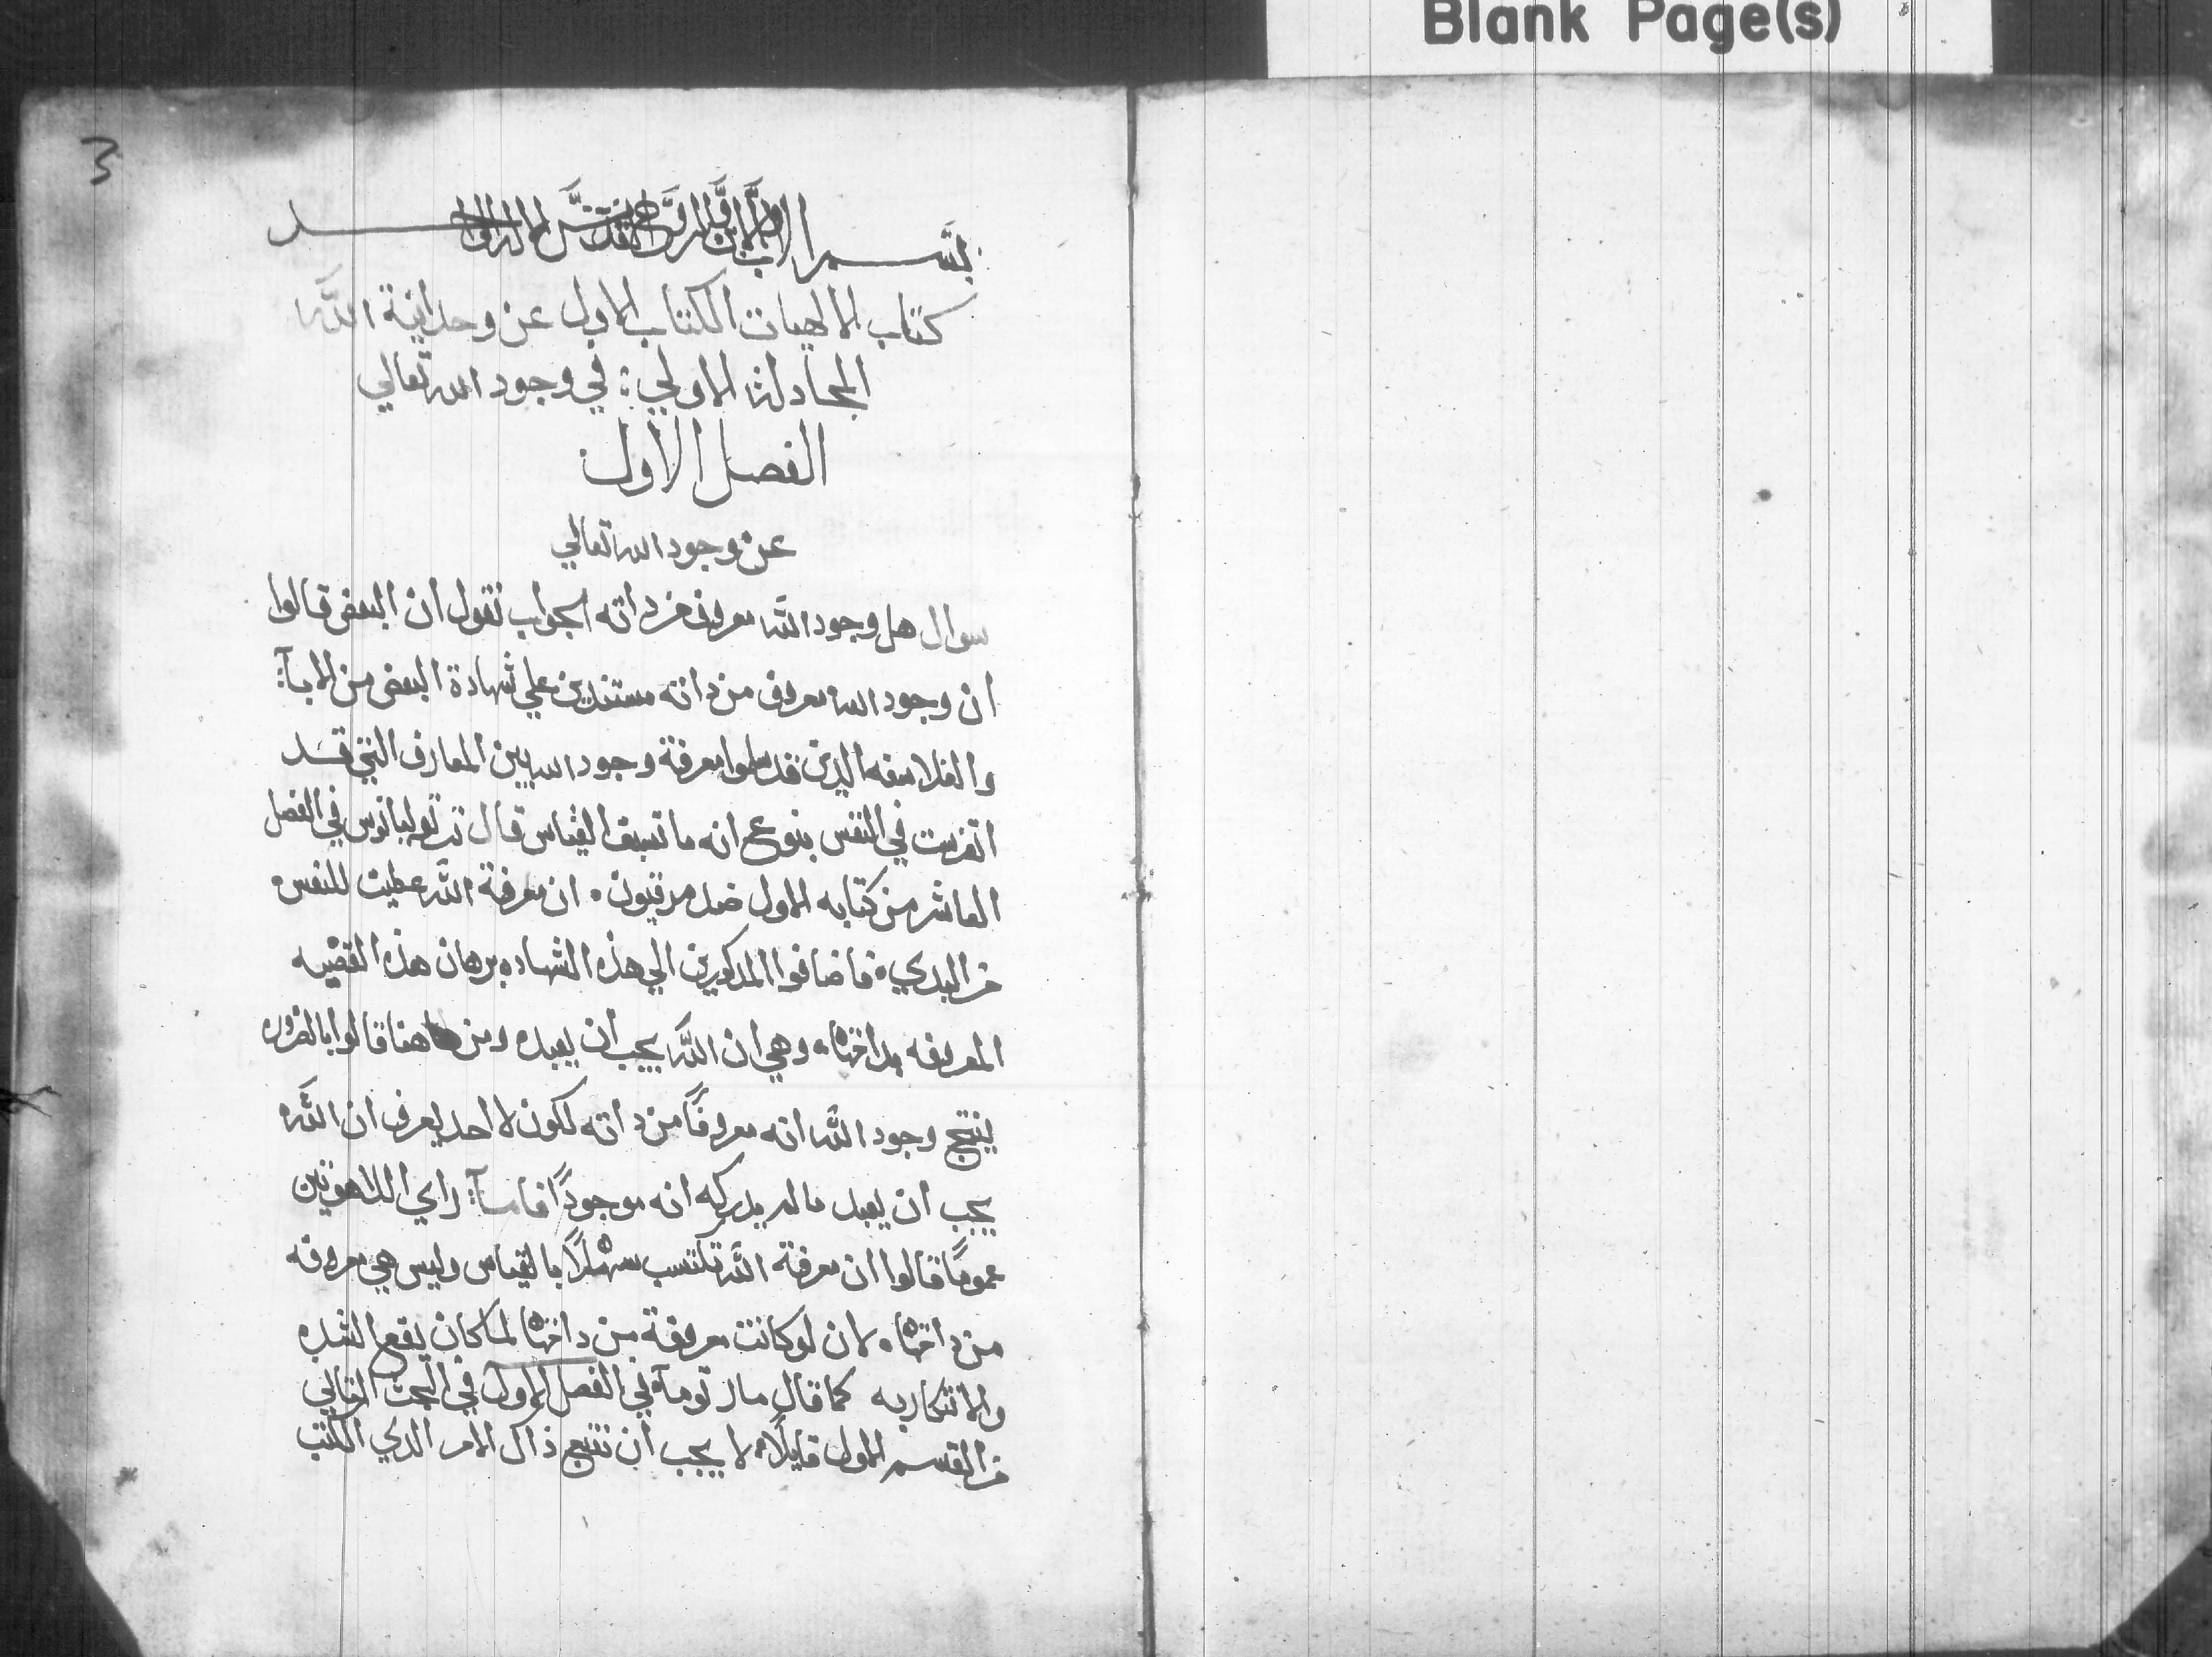 Blank Page(s)
3
بسم الاب والابن والروح القدس الاله الواحد
كتاب الالهيات الكتاب الاول عن وحدانية الله
المجادلة الاولي: في وجود الله تعالي
الفصل الاول
عن وجود الله تعالي
سوال هل وجود الله معروف من داته الجواب نقول ان البعض قالوا
ان وجود الله معروف من داته مستندين علي شهادة البعض من الابآ:
والفلاسفه الدين قد سلموا معرفة وجود الله بين المعارف التي قد
اتغرست في النفس بنوع انه ما تسبق القياس قال ترتوليانوس في الفصل
العاشر من كتابه الاول ضد مرقيون. ان معرفة الله عطيت للنفس.
من البدي. فاضافوا المدكورين الي هذه الشهاده برهان هذه القضيه
المعروفه بداتها. وهي ان الله يجب ان يعبد. ومن هاهنا قالوا بالضروره
ينتج وجود الله انه معروفاً من داته لكون لا احد يعرف ان الله
يجب ان يعبد ما لم يدركه انه موجوداً فاما رآي اللاهوتين
عموماً قالوا ان معرفة الله تكتسب سهلاً بالقياس وليس هي معروفه
من داتها. لان لو كانت معروفة من داتها لما كان يقع الشك
والانكار به كما قال مار توما في الفصل الاول في البحت التاني
من القسم الاول قايلاً. لا يجب ان نتبع ذاك الامر الدي الكتب